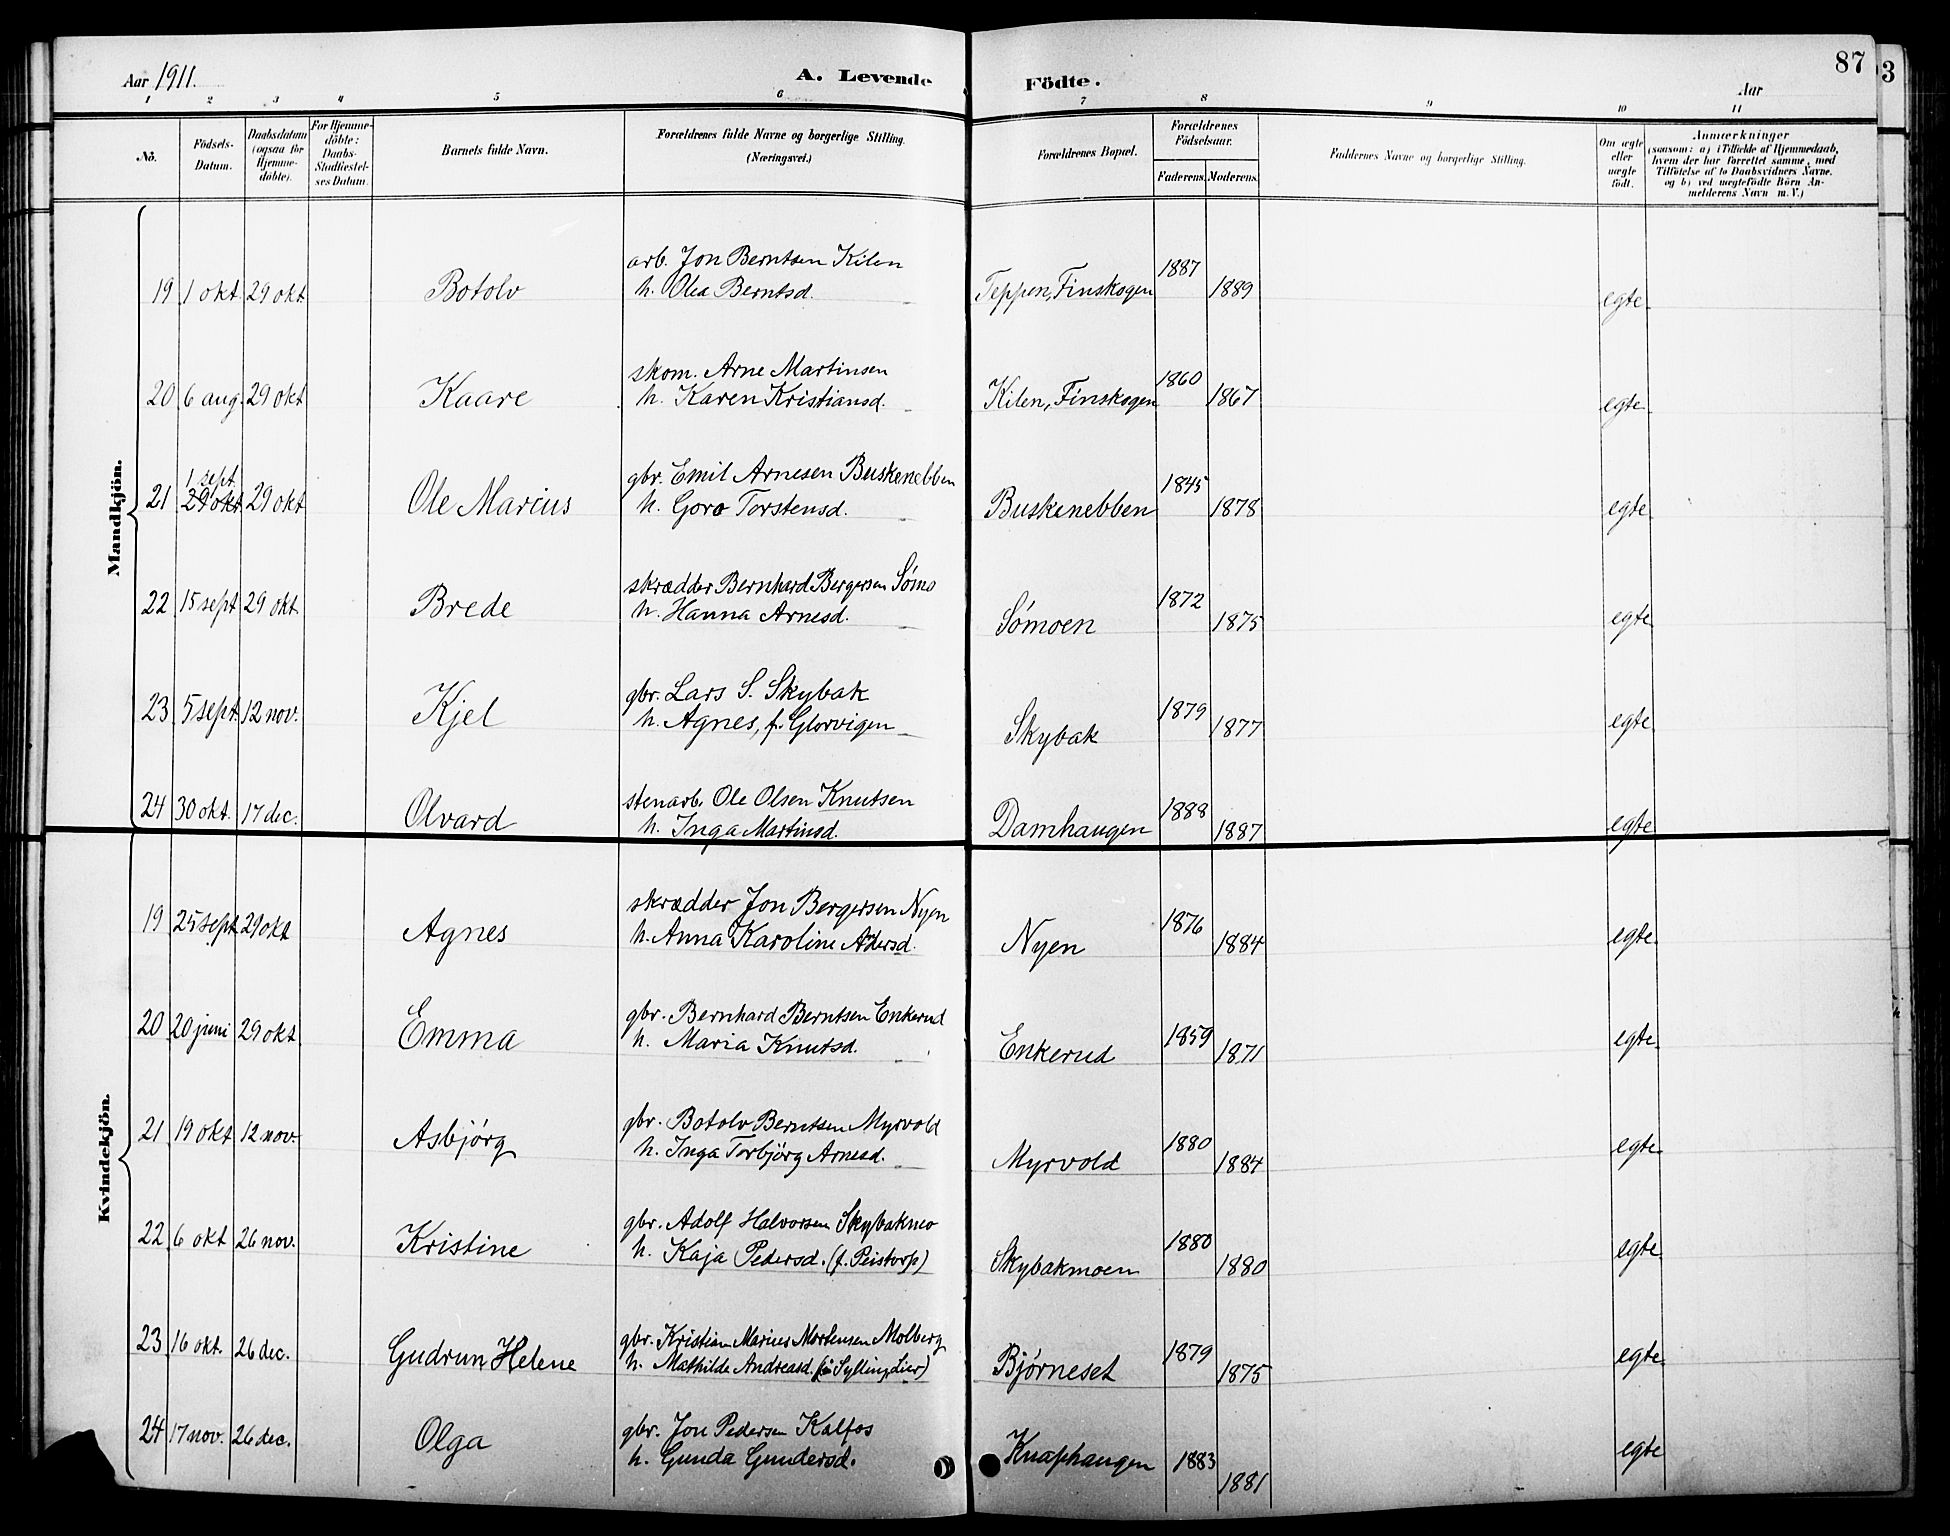 Aar 1911.
A. Levende Födte.
87
Aar
3
1 2 3 4 5 6 7 8 9 10 11
No.
Födsels-Datum.
Daabsdatum (ogsaa for Hjemme-döbte).
For Hjemme-döbte: Daabs-Stadfæstel-ses Datum.
Barnets fulde Navn.
Forældrenes fulde Navne og borgerlige Stilling. (Næringsvei.)
Forældrenes Bopæl.
Forældrenes Födselsaar.
Faderens. Moderens.
Faddernes Navne og borgerlige Stilling.
Om ægte eller uægte födt.
Anmærkninger (saasom: a) i Tilfælde af Hjemmedaab, hvem der har forrettet samme, med Tilföielse af to Daabsvidners Navne, og b) ved uægtefödte Börn An-melderens Navn m. V.)
Mandkjön.
arb. Jon Berntsen Kilen 1887
19 1 okt. 29 okt Botolv h. Olea Berntsd. Teppen, Finskogen 1889 egte.
skom. Arne Martinsen 1860
20 6 aug. 29 okt Kaare h. Karen Kristiansd. Kilen, Finskogen 1867 egte
1 sept. gbr. Emil Arnesen Buskenebben 1845
21 29 okt 29 okt Ole Marius h. Goro Torstensd. Buskenebben 1878 egte
skrædder Bernhard Bergersen Sømo 1872
22 15 sept 29 okt. Brede h. Hanna Arnesd. Sømoen 1875 egte
gbr. Lars S. Skybak 1879
23 5 sept. 12 nov. Kjel h. Agnes, f. Glorvigen Skybak 1877 egte
stenarb. Ole Olsen Knutsen 1888
24 30 okt. 17 dec. Olvard h. Inga Martinsd. Damhaugen 1887 egte
Kvindekjön.
skrædder Jon Bergersen Nyen 1876
19 25 sept 29 okt Agnes h. Anna Karoline Andersd. Nyen 1884 egte.
gbr. Bernhard Berntsen Enkerud 1859
20 20 juni 29 okt. Emma h. Maria Knutsd. Enkerud 1871 egte.
gbr. Botolv Berntsen Myrvold 1880
21 19 okt 12 nov. Asbjörg h. Inga Torbjörg Arnesd. Myrvold 1884 egte.
gbr. Adolf Halvorsen Skybakmo 1880
22 6 okt 26 nov. Kristine h. Kaja Pedersd. (f. Peistorp) Skybakmoen 1880 egte
gbr. Kristian Marius Mortensen Molberg 1879
23 16 okt. 26 dec. Gudrun Helene h. Mathilde Andreasd. (f. Sylling, Lier) Bjørneset 1875 egte.
gbr. Jon Pedersen Kalfos
24 17 nov. 26 dec. Olga h. Gunda Gundersd. Knaphaugen 1883 1881 egte